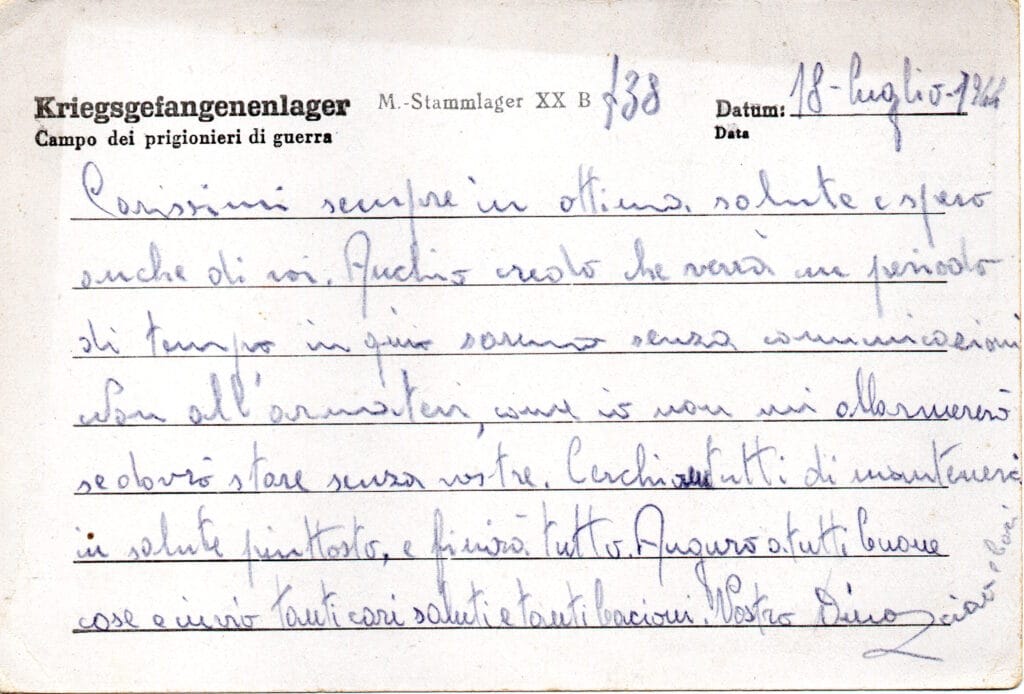 Kriegsgefangenenlager M.-Stammlager XX B f38 Datum: 18-luglio-1944
Campo dei prigionieri di guerra Data
Carissimi sempre in ottima salute e spero
anche di voi. Anch'io credo che verrà un periodo
di tempo in qui saremo senza comunicazioni
Non all'armatevi, come io non mi allarmerò
se dovrò stare senza vostre. Cerchiamo tutti di mantenerci
in salute piuttosto, e finirà tutto. Auguro a tutti buone
cose e invio tanti cari saluti e tanti bacioni. Vostro Dino
ciao